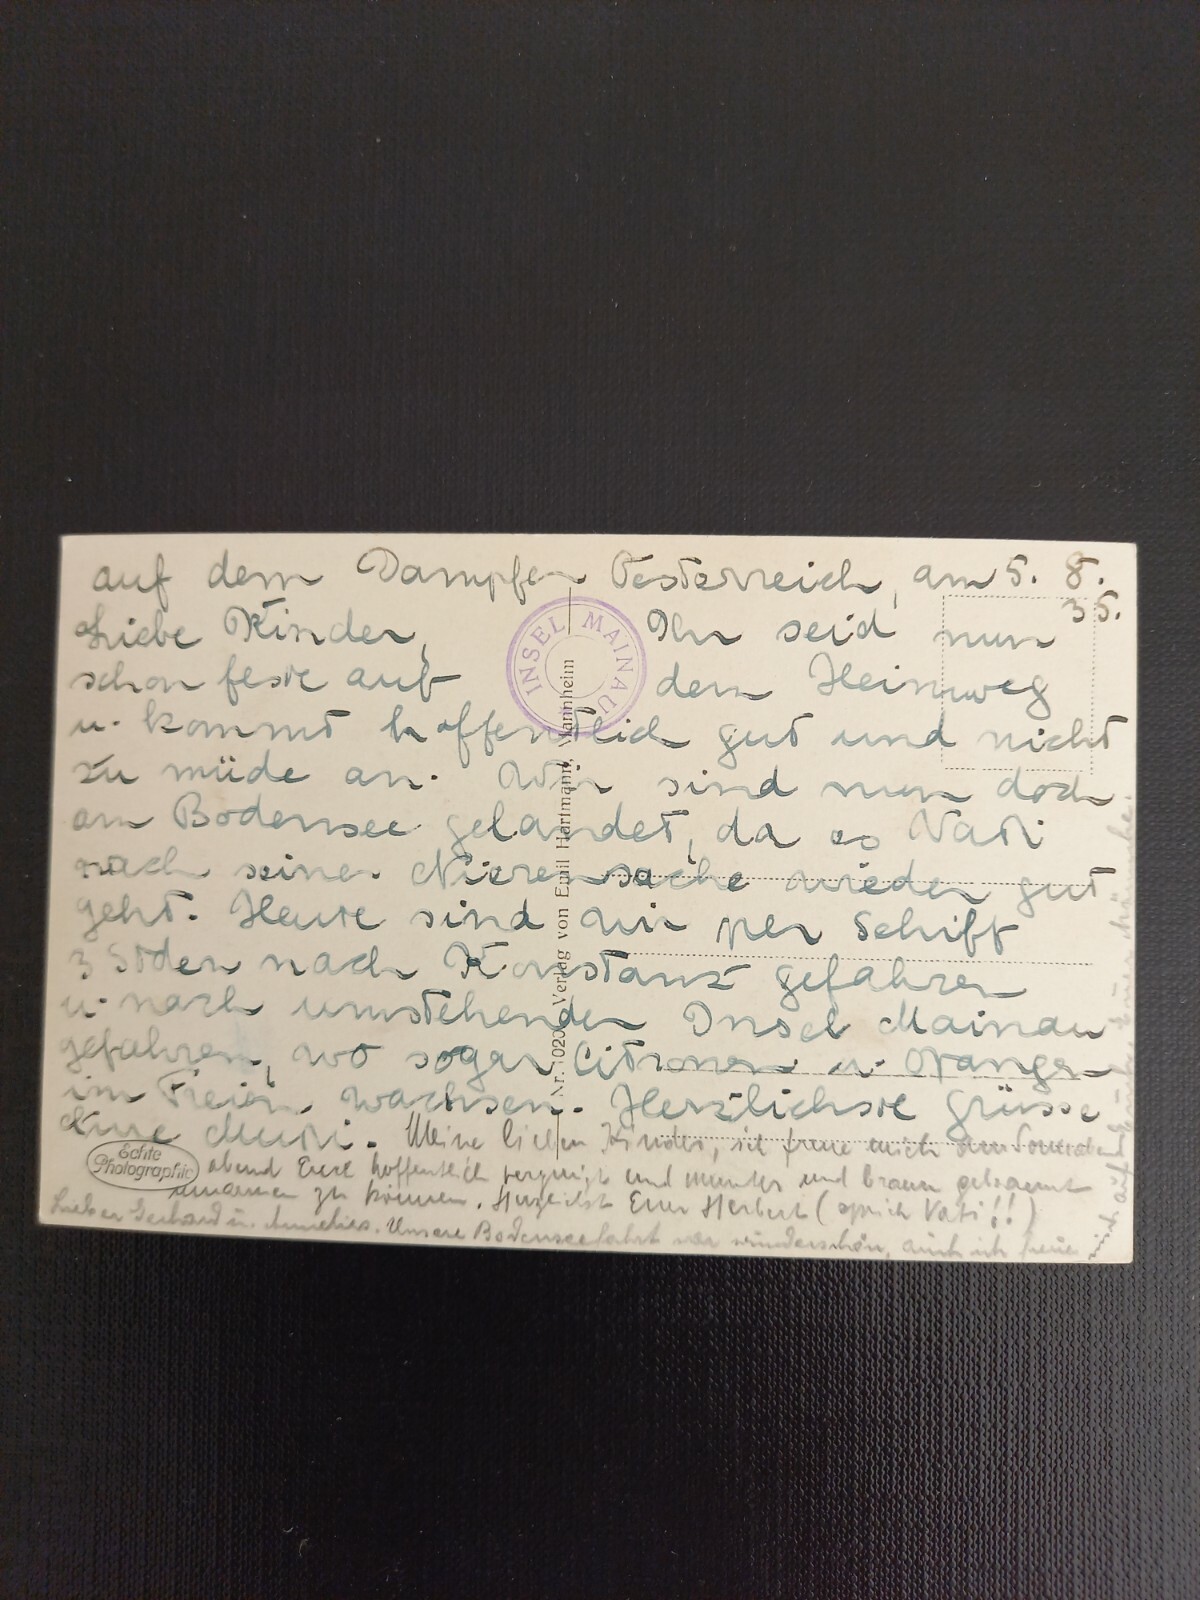 auf dem Dampfer Oesterreich, am 5. 8.
35.
Liebe Kinder, Ihr seid nun
schon feste auf dem Heimweg
u. kommt hoffentlich gut und nicht
zu müde an. Wir sind nun doch
am Bodensee gelandet, da es Vati
nach seiner Nierensache wieder gut
geht. Heute sind wir per Schiff
3 Stden nach Konstanz gefahren
u. nach umstehender Insel Mainau
gefahren, wo sogar Citronen u. Orangen
im Freien wachsen. Herzlichste Grüsse
Eure Muti.
Meine lieben Kinder, ich freue mich am Sonnabend
abend Euch hoffentlich vergnügt und munter und braun gebrannt
umarmen zu können. Herzlichst Euer Herbert (sprich Vati!!)
Lieber Gerhard u. Annelies. Unsere Bodenseefahrt war wunderschön, auch ich freue
mich auf
INSEL MAINAU
Nr. 1020 Verlag von Emil Hartmann, Mannheim
Echte
Photographie